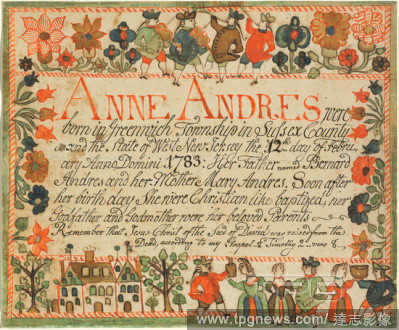 ANNE ANDRES were
born in Greenwich Township in Sussex County
and the State of West New Jersey the 12th day of Febru
ary Anno Domini 1783: Her Father named Bernard
Andres and her Mother Mary Andres, Soon after
her birth day She were Christian like baptized, her
Godfather and Godmother were her beloved Parents
Remember that Jesus Christ of the Seed of David was raised from the
Dead, according to my Gospel 2 Timothy 2 vers 8
www.tpgnews.com/ 達志影像